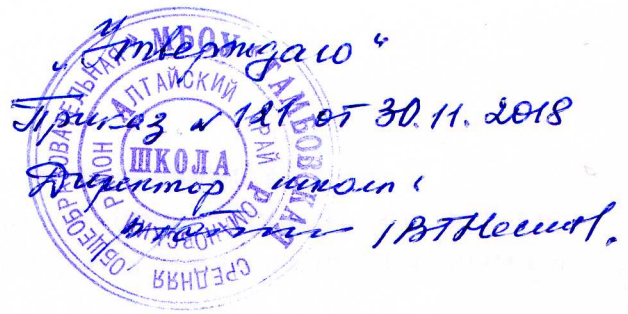 „Утверждаю“
Приказ № 121 от 30.11.2018
Директор школы
МБОУ ТАМБОВСКАЯ СРЕДНЯЯ ОБЩЕОБРАЗОВАТЕЛЬНАЯ
АЛТАЙСКИЙ КРАЙ РОМАНОВСКИЙ РАЙОН
ШКОЛА